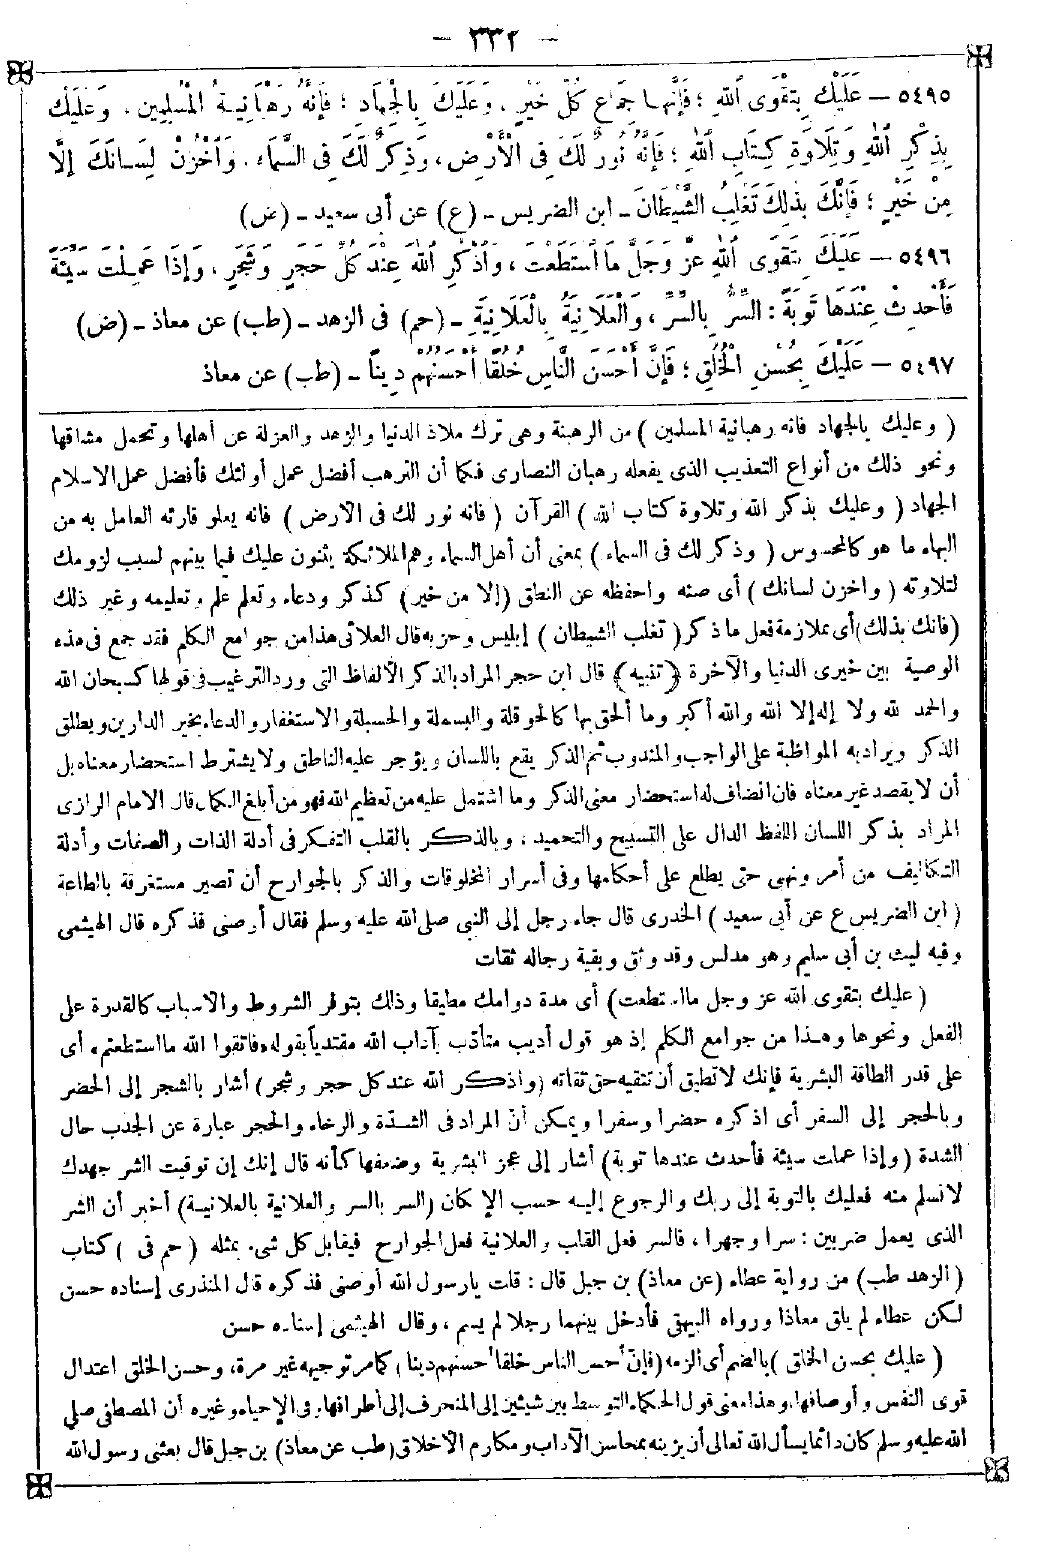 - ٣٣٢ -
٥٤٩٥ – عَلَيْكَ بِتَقْوَى اللهِ ؛ فَإِنَّهَا جِمَاعُ كُلِّ خَيْرٍ ، وَعَلَيْكَ بِالْجِهَادِ ؛ فَإِنَّهُ رَهْبَانِيَةُ الْمُسْلِمِينَ ، وَعَلَيْكَ
بِذِكْرِ اللهِ وَتِلَاوَةِ كِتَابِ اللهِ ؛ فَإِنَّهُ نُورٌ لَكَ فِى الْأَرْضِ ، وَذِكْرٌ لَكَ فِى السَّمَاءِ ، وَاخْزُنْ لِسَانَكَ إِلَّا
مِنْ خَيْرٍ ؛ فَإِنَّكَ بِذٰلِكَ تَغْلِبُ الشَّيْطَانَ – ابن الضريس – (ع) عن أبى سعيد – (ض)
٥٤٩٦ – عَلَيْكَ بِتَقْوَى اللهِ عَزَّ وَجَلَّ مَا اسْتَطَعْتَ ، وَاذْكُرِ اللهَ عِنْدَ كُلِّ حَجَرٍ وَشَجَرٍ ، وَإِذَا عَمِلْتَ سَيِّئَةً
فَأَحْدِثْ عِنْدَهَا تَوْبَةً : السِّرُّ بِالسِّرِّ ، وَالْعَلَانِيَةُ بِالْعَلَانِيَةِ – (حم) فى الزهد – (طب) عن معاذ – (ض)
٥٤٩٧ – عَلَيْكَ بِحُسْنِ الْخُلُقِ ؛ فَإِنَّ أَحْسَنَ النَّاسِ خُلُقًا أَحْسَنُهُمْ دِينًا – (طب) عن معاذ
( وعليك بالجهاد فانه رهبانية المسلمين ) من الرهبنة وهى ترك ملاذ الدنيا والزهد والعزلة عن أهلها وتحمل مشاقها
ونحو ذلك من أنواع التعذيب الذى يفعله رهبان النصارى فكما أن الترهب أفضل عمل أولئك فأفضل عمل الاسلام
الجهاد ( وعليك بذكر الله وتلاوة كتاب الله ) القرآن ( فانه نور لك فى الارض ) فانه يعلو قارئه العامل به من
البهاء ما هو كالمحسوس ( وذكر لك فى السماء ) بمعنى أن أهل السماء وهم الملائكة يثنون عليك فيما بينهم لسبب لزومك
لتلاوته ( واخزن لسانك ) أى صنه واحفظه عن النطق (إلا من خير) كذكر ودعاء وتعلم علم وتعليمه وغير ذلك
(فانك بذلك) أى بملازمة فعل ما ذكر ( تغلب الشيطان ) إبليس وحزبه قال العلائى هذا من جوامع الكلم فقد جمع فى هذه
الوصية بين خيرى الدنيا والآخرة ﴿تنبيه﴾ قال ابن حجر المراد بالذكر الألفاظ التى ورد الترغيب فى قولها كسبحان الله
والحمد لله ولا إله إلا الله والله أكبر وما ألحق بها كالحوقلة والبسملة والحسبلة والاستغفار والدعاء بخير الدارين ويطلق
الذكر ويراد به المواظبة على الواجب والمندوب ثم الذكر يقع باللسان ويؤجر عليه الناطق ولا يشترط استحضار معناه بل
أن لا يقصد غير معناه فان انضاف له استحضار معنى الذكر وما اشتمل عليه من تعظيم الله فهو من أبلغ الكمال قال الامام الرازى
المراد بذكر اللسان اللفظ الدال على التسبيح والتحميد ، وبالذكر بالقلب التفكر فى أدلة الذات والصفات وأدلة
التكاليف من أمر ونهى حتى يطلع على أحكامها وفى أسرار المخلوقات والذكر بالجوارح أن تصير مستغرقة بالطاعة
( ابن الضريس ع عن أبى سعيد ) الخدرى قال جاء رجل إلى النبى صلى الله عليه وسلم فقال أوصنى فذكره قال الهيثمى
وفيه ليث بن أبى سليم وهو مدلس وقد وثق وبقية رجاله ثقات
( عليك بتقوى الله عز وجل ما استطعت) أى مدة دوامك مطيقا وذلك بتوفر الشروط والاسباب كالقدرة على
الفعل ونحوها وهذا من جوامع الكلم إذ هو قول أديب متأدب بآداب الله مقتديا بقوله «فاتقوا الله ما استطعتم» أى
على قدر الطاقة البشرية فإنك لا تطيق أن تتقيه حق تقاته (واذكر الله عند كل حجر وشجر) أشار بالشجر إلى الحضر
وبالحجر إلى السفر أى اذكره حضرا وسفرا ويمكن أن المراد فى الشدة والرخاء والحجر عبارة عن الجدب حال
الشدة (وإذا عملت سيئة فأحدث عندها توبة) أشار إلى عجز البشرية وضعفها كأنه قال إنك إن توقيت الشر جهدك
لا تسلم منه فعليك بالتوبة إلى ربك والرجوع إليه حسب الإمكان (السر بالسر والعلانية بالعلانية) أخبر أن الشر
الذى يعمل ضربين : سرا وجهرا ، فالسر فعل القلب والعلانية فعل الجوارح فيقابل كل شىء بمثله ( حم فى ) كتاب
(الزهد طب) من رواية عطاء (عن معاذ) بن جبل قال : قلت يارسول الله أوصنى فذكره قال المنذرى إسناده حسن
لكن عطاء لم يلق معاذا ورواه البيهقى فأدخل بينهما رجلا لم يسم ، وقال الهيثمى إسناده حسن
( عليك بحسن الخلق ) بالضم أى الزمه (فإن أحسن الناس خلقا أحسنهم دينا) كما مر توجيهه غير مرة، وحسن الخلق اعتدال
قوى النفس وأوصافها، وهذا معنى قول الحكماء التوسط بين شيئين إلى المنحرف إلى أطرافها، وفى الإحياء وغيره أن المصطفى صلى
الله عليه وسلم كان دائما يسأل الله تعالى أن يزينه بمحاسن الآداب ومكارم الأخلاق (طب عن معاذ) بن جبل قال بعثنى رسول الله